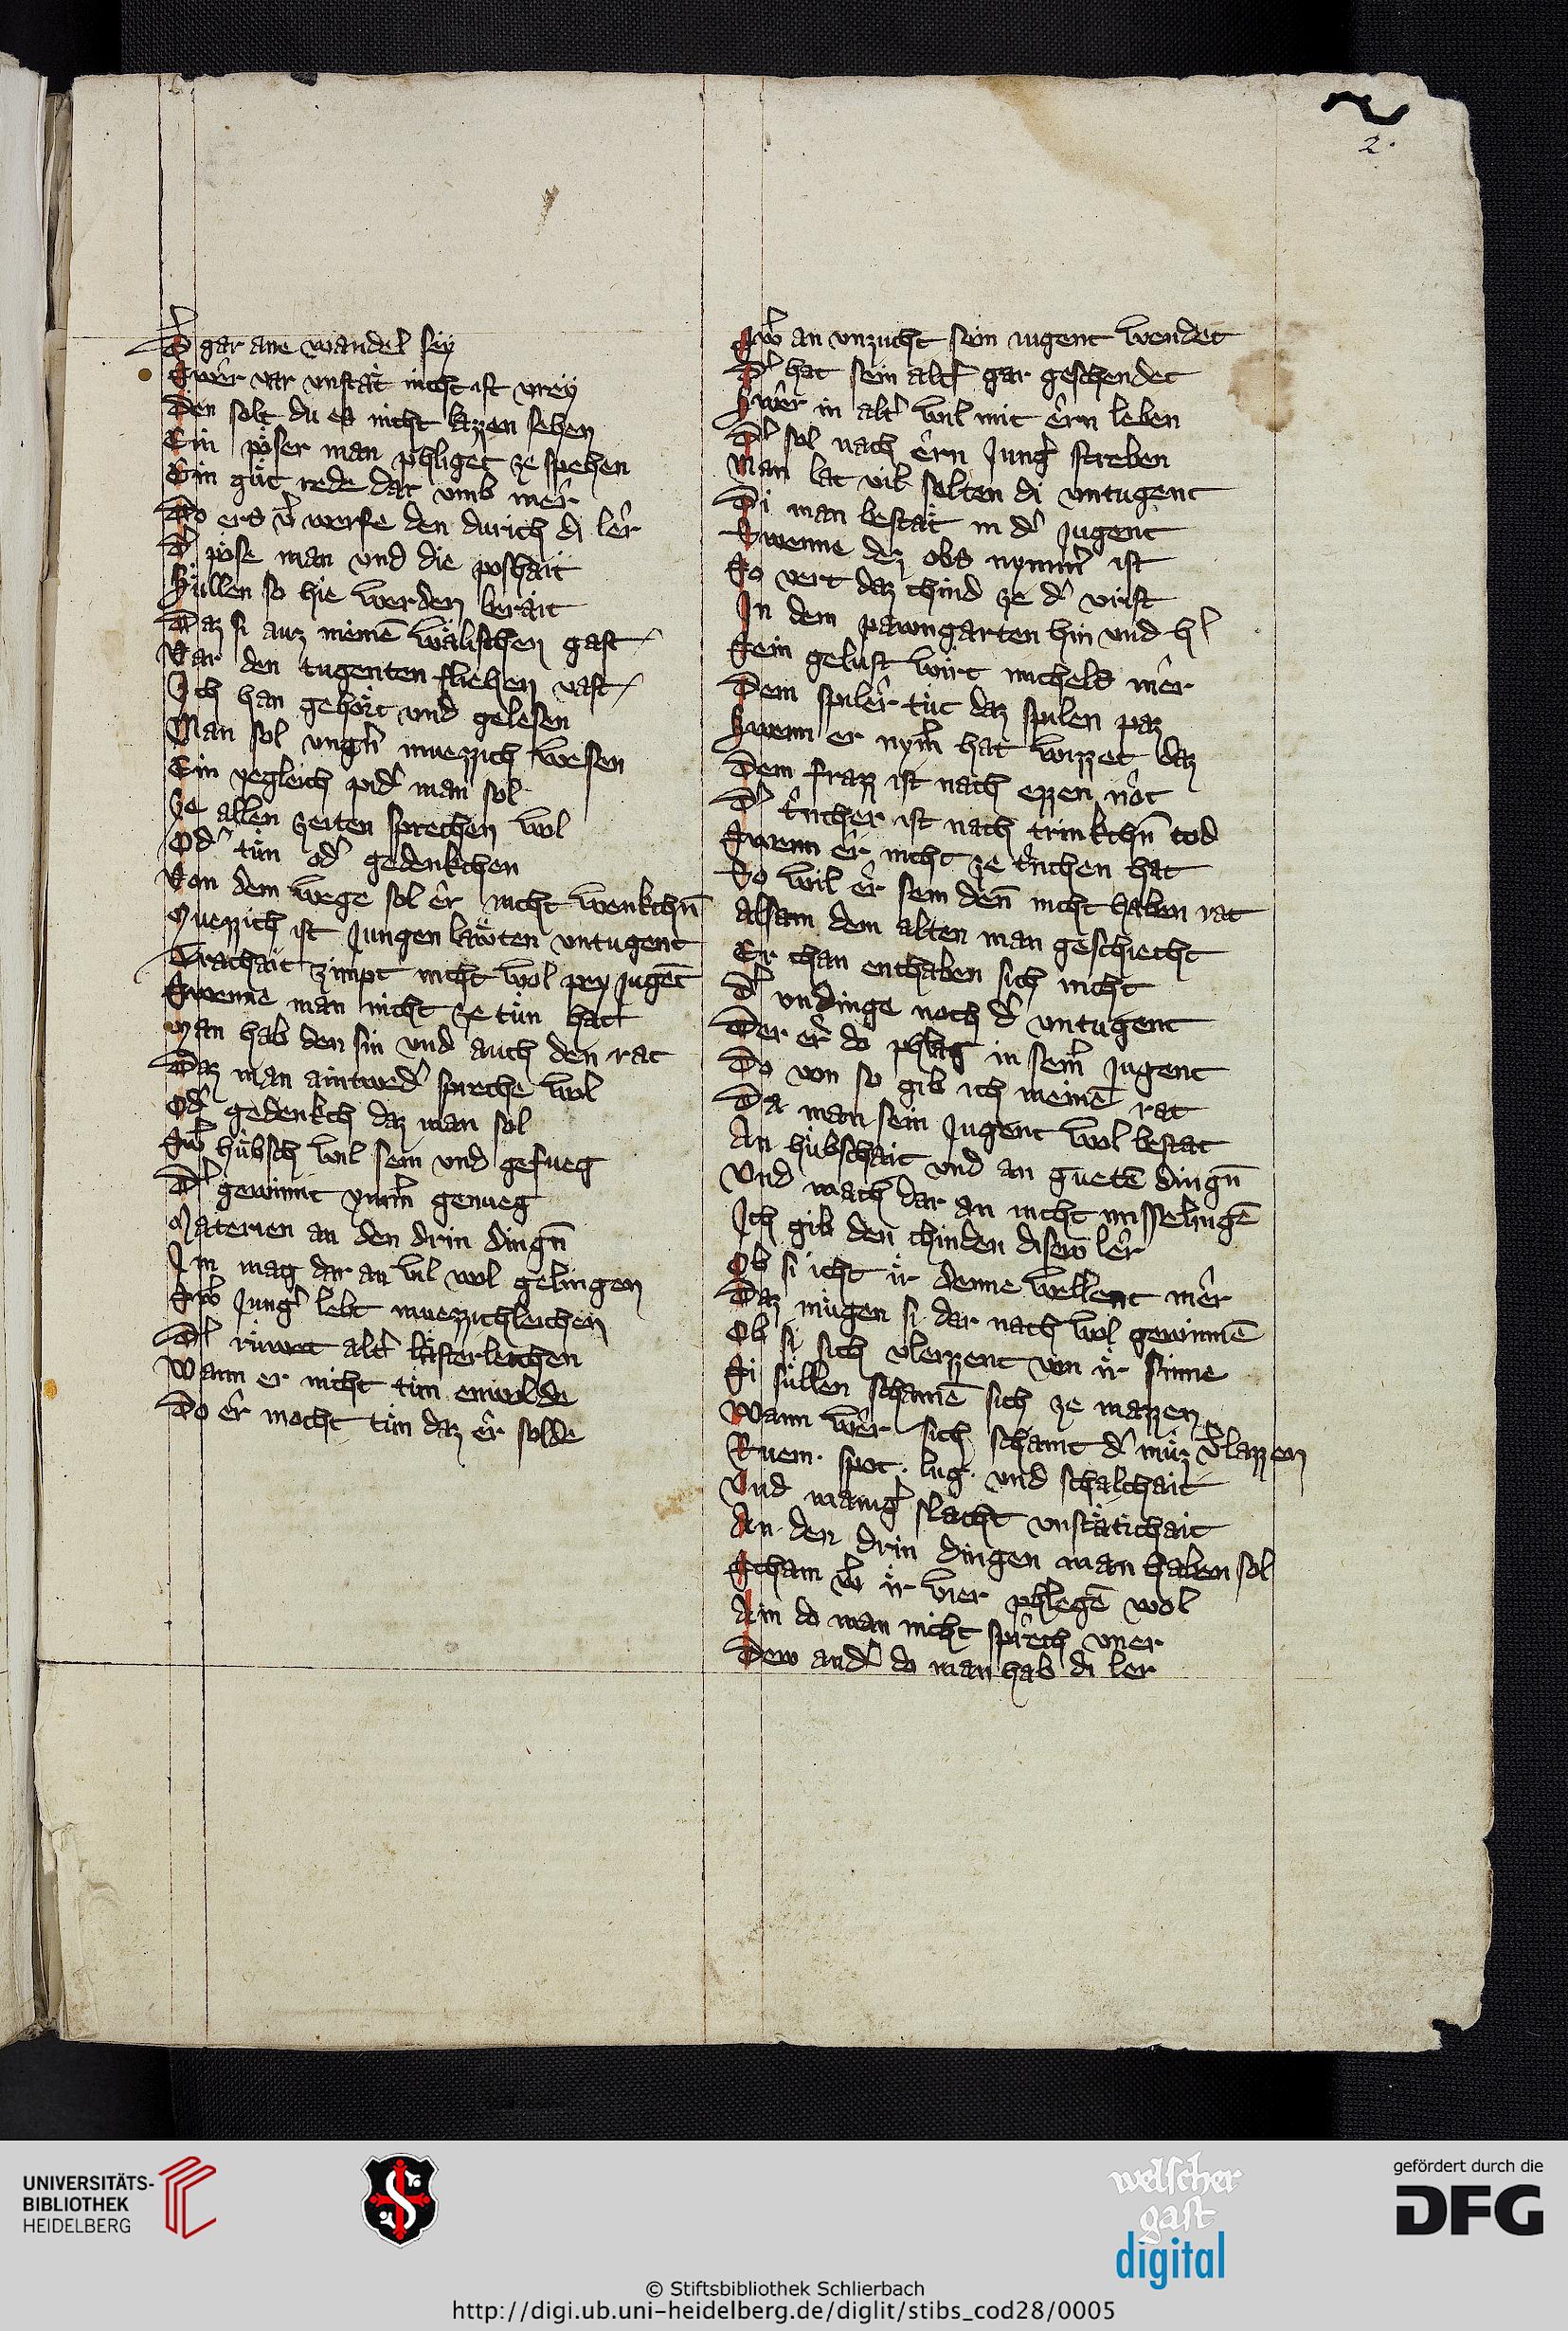 2.
D᷑ gar ane wandel sey
Swêr var vnstaͤt nicht ist vrey
Den solt du es nicht lazzen sehen
Ein poͤser man phliget ze spehen
Ein guͤt rede dar vmb mêr
Do ers v᷑werfe den durich di lêr
D᷑ poͤse man vnd die poshait
Suͤllen so hie werden berait
Daz si auz meinē waͤlischen gast
Var den tugenten fliehen vast
Ich han gehoͤrt vnd gelesen
Man sol vngn̄ muezzich wesen
Ein yegleich pid᷑ man sol
Ze allen zeiten sprechen wol
Od᷑ tuͤn od᷑ gedenkchen
Von dem wege sol êr nicht wenkchn̄
Muezzich ist Jungen laͤwten vntugent
Trachait zimpt nicht wol pey Jugēt
Swenne man nicht ze tuͤn hat
Man hab den sin vnd auch den rat
Daz man aintwed᷑ spreche wol
Od᷑ gedenkch daz man sol
Sw᷑ huͤbsch wil sein vnd gefueg
D᷑ gewinnt ymm᷑ genueg
Materien an den drin dingn̄
Im mag dar an vil wol gelingen
Sw᷑ Jung᷑ lebt muezzichleichen
D᷑ ruͤwet alt᷑ laͤsterleichen
Wann er nicht tuͤn enwolde
Do êr mocht tuͤn daz êr solde
Sw᷑ an vnzucht sein iugent wendet
D᷑ hat sein alt᷑ gar geschendet
Swêr in alt᷑ wil mit êrn leben
D᷑ sol nach êrn Jung᷑ streben
Man lat vil selten di vntugent
Di man bestaͤt in d᷑ Jugent
Swenne dez obs nymm᷑ ist
So vert daz chind ze d᷑ vrist
In dem pawmgarten hin vnd h᷑
Sein gelust wirt michels mêr
Dem spilêr tuͤt daz spilen paz
Swenn er nym᷑ hat wizzet daz
Dem frazz ist nach ezzen nôt
D᷑ trincher ist nach trinkchn̄ tod
Swenn êr nicht ze trinchen hat
So wil êr sein den̄ nicht haben rat
Alsam dem alten man geschiecht
Er chan enthaben sich nicht
D᷑ vndinge noch d᷑ vntugent
Der er do phlag in sein᷑ Jugent
Do von so gib ich meinē rat
Da man sein Jugent wol bestat
An huͤbschait vnd an guetē dingn̄
Vnd mach dar an nicht misselingē
Ich gib den chinden disew lêr
Ob si icht ir denne wellent mêr
Daz muͤgen si dar nach wol gewinnē
Ob si sich vlerzzent von ir sinne
Si suͤllen schamē sich ze mazzen
Wann wêr sich schamt d᷑ muͤz v᷑lazzen
Ruem · spot · lug · vnd schalchait
Vnd manig᷑ slacht vnstaͤtichait
An den drin dingen man haben sol
Scham w᷑ ir wier phlegē wol
Ain do man nicht sprech vner
Dew and᷑ do man hab di ler
UNIVERSITÄTS-
BIBLIOTHEK
HEIDELBERG
S
welscher
gast
digital
gefördert durch die
DFG
© Stiftsbibliothek Schlierbach
http://digi.ub.uni-heidelberg.de/diglit/stibs_cod28/0005